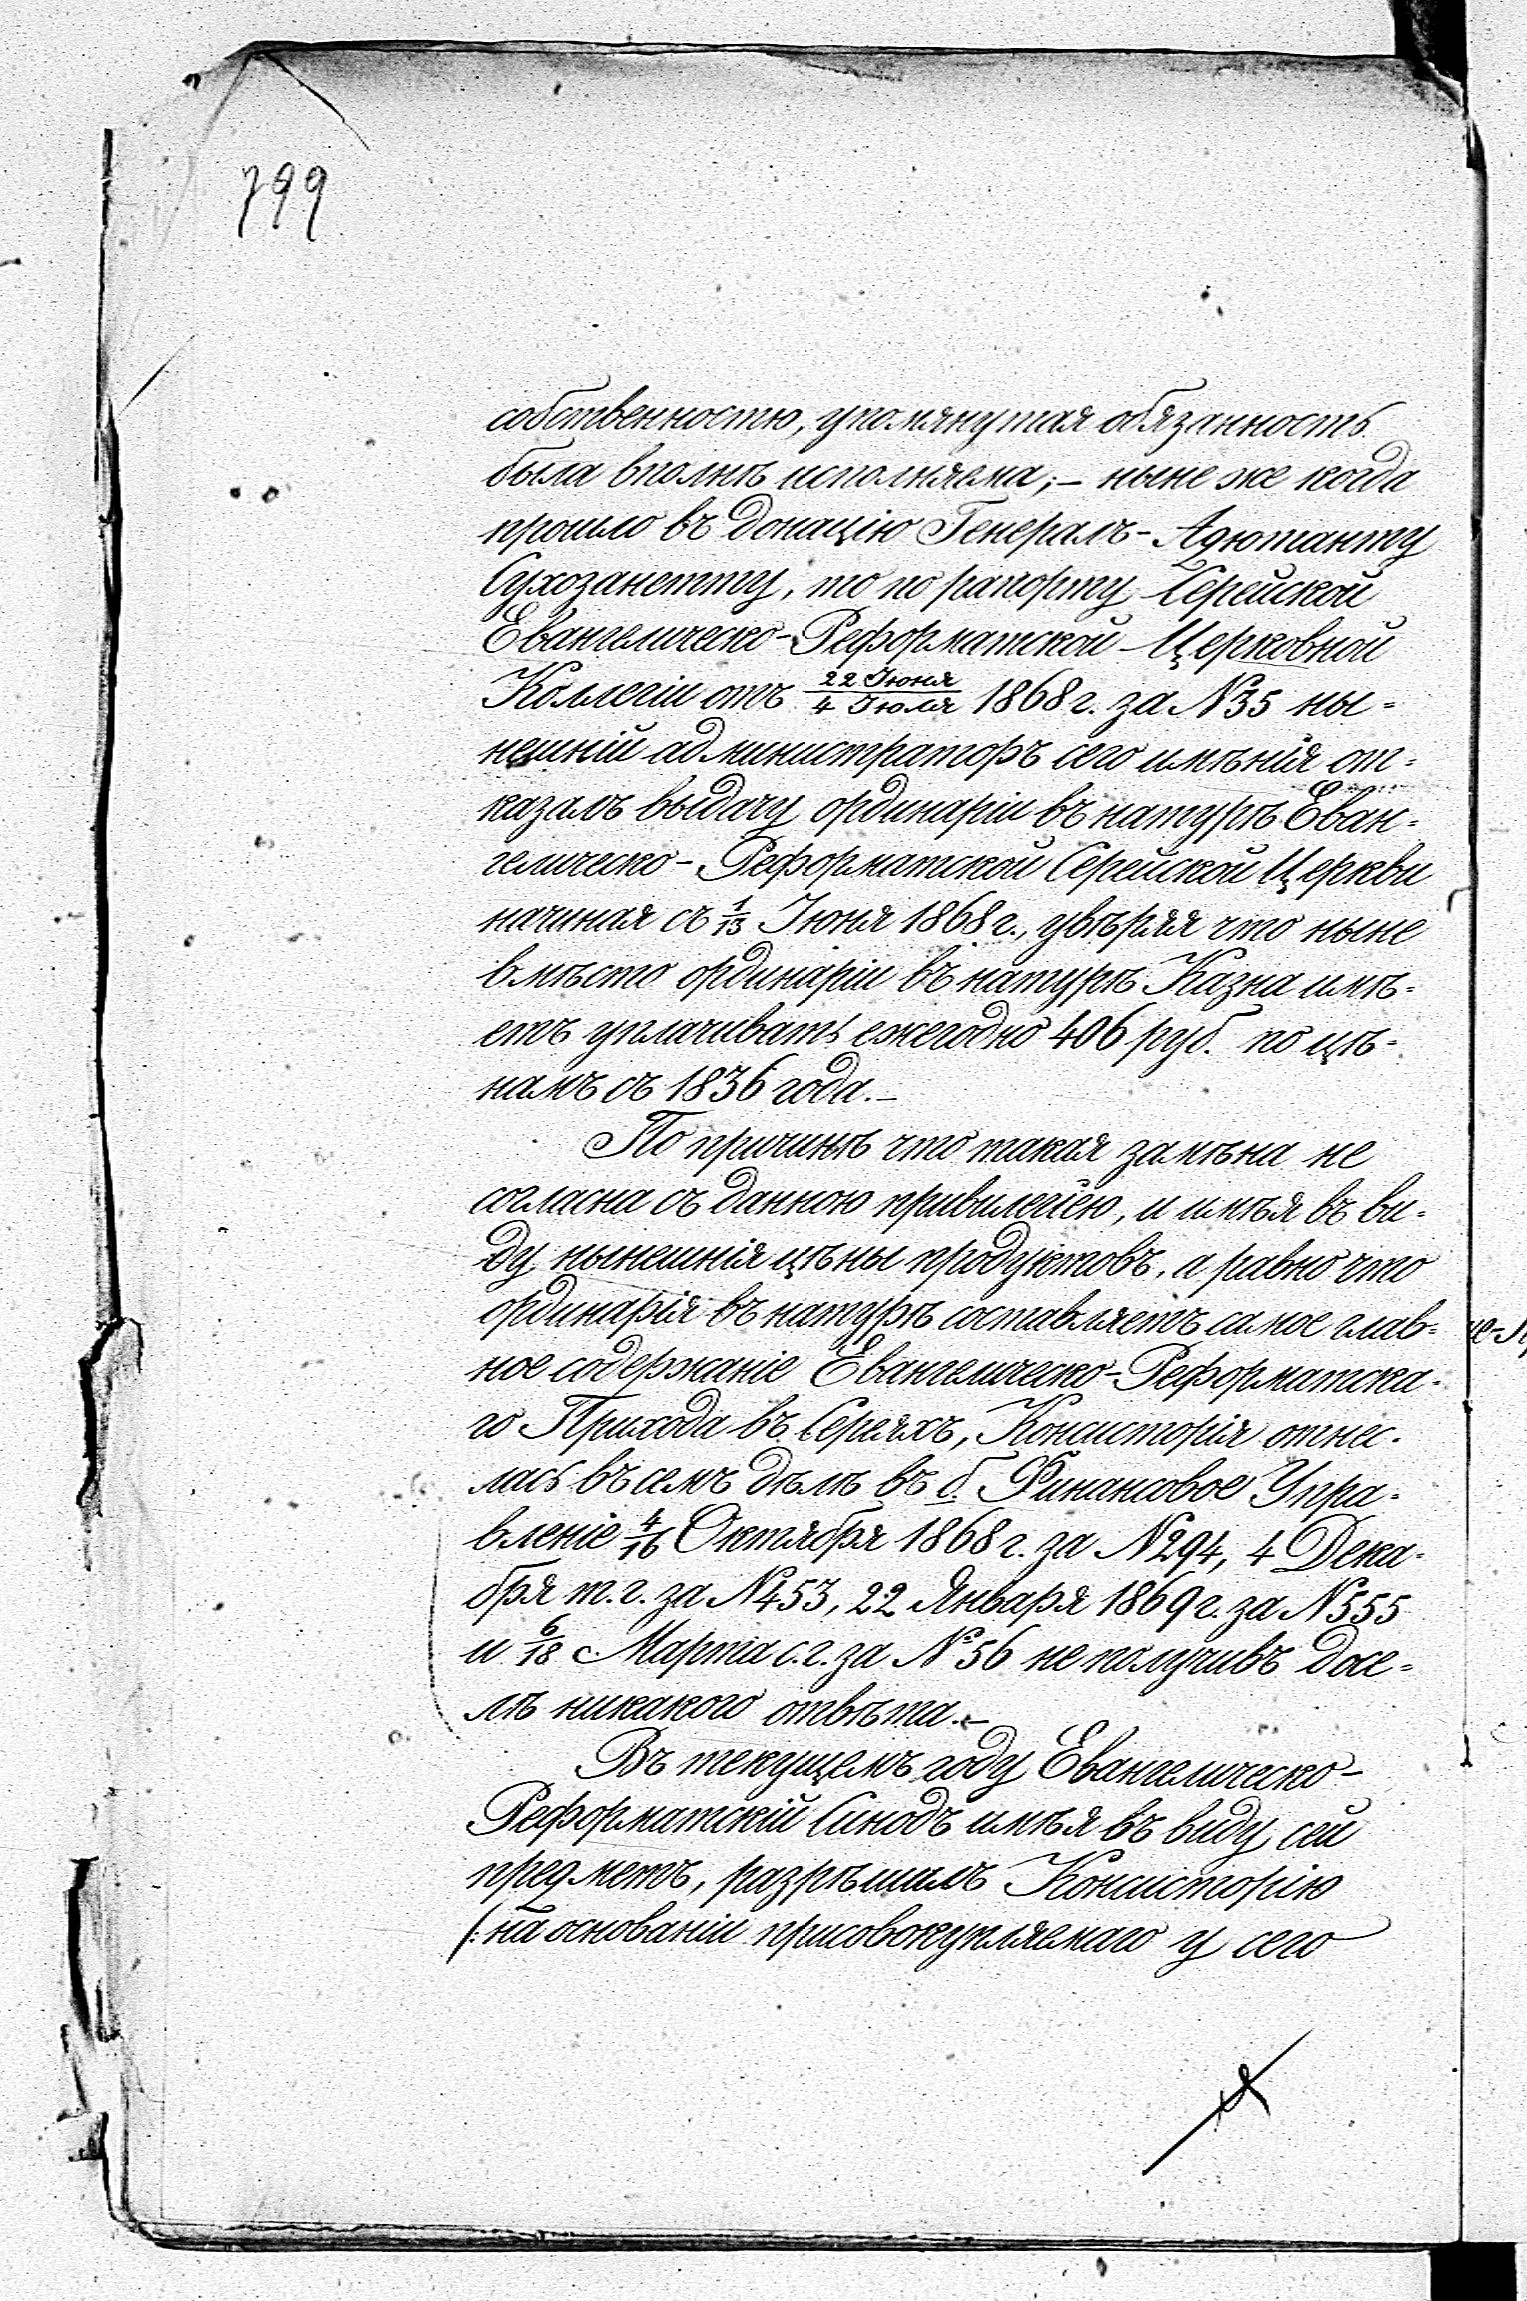 799
собственностю, упомянутая обязанность
была вполнѣ исполняема; – ныне же когда
прошло въ донацію Генералъ-Адютанту
Сухозанетту, то по рапорту Серейской
Евангелическо-Реформатской Церковной
Коллегіи отъ 22 Іюня/4 Іюля 1868 г. за №35 ны=
нешній администраторъ сего имѣнія от=
казалъ выдачу ординаріи въ натурѣ Еван=
гелическо-Реформатской Серейской Церкви
начиная съ 1/13 Іюня 1868 г., увѣряя что ныне
вмѣсто ординаріи въ натурѣ Казна имѣ=
етъ уплачивать ежегодно 406 руб. по цѣ=
намъ съ 1836 года. –
По причинѣ что такая замѣна не
согласна съ данною привилегіею, и имѣя въ ви=
ду нынешнія цѣны продуктовъ, а равно что
ординарія въ натурѣ составляетъ самое глав=
ное содержаніе Евангелическо-Реформатска=
го Прихода въ Сереяхъ, Консисторія отнес=
лась въ семъ дѣлѣ въ б. Финансовое Упра=
вленіе 4/16 Октября 1868 г. за №294, 4 Дека=
бря т. г. за №453, 22 Января 1869 г. за №555
и 6/18 Марта с. г. за №56 не получивъ досе=
лѣ никакого отвѣта. –
Въ текущемъ году Евангелическо-
Реформатскій Синодъ имѣя въ виду сей
предметъ, разрѣшилъ Консисторію
(: на основаніи присовокупляемаго у сего